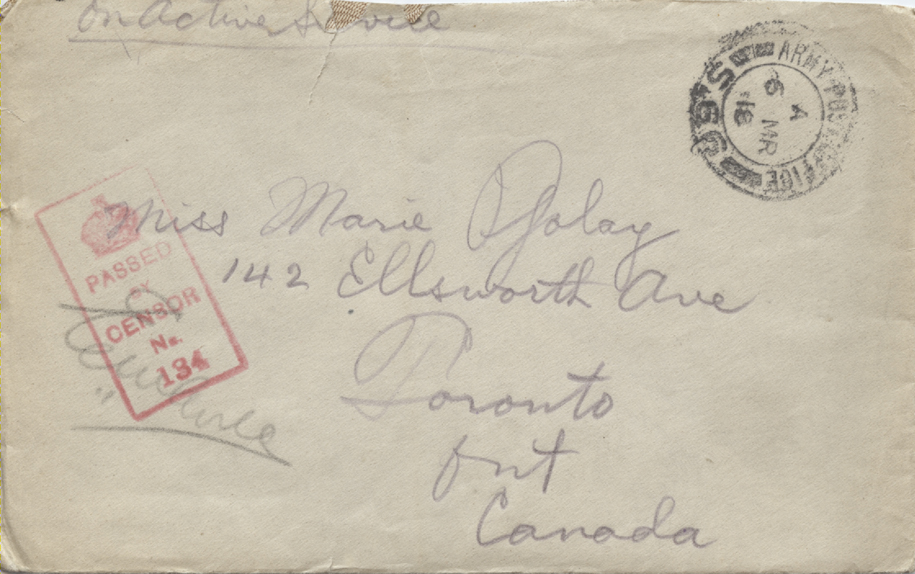 On Active Service
ARMY POST OFFICE
S.69
A
6 MR
18
Miss Marie
142 Ellsworth Ave
Toronto
Ont
Canada
PASSED
BY
CENSOR
No.
134